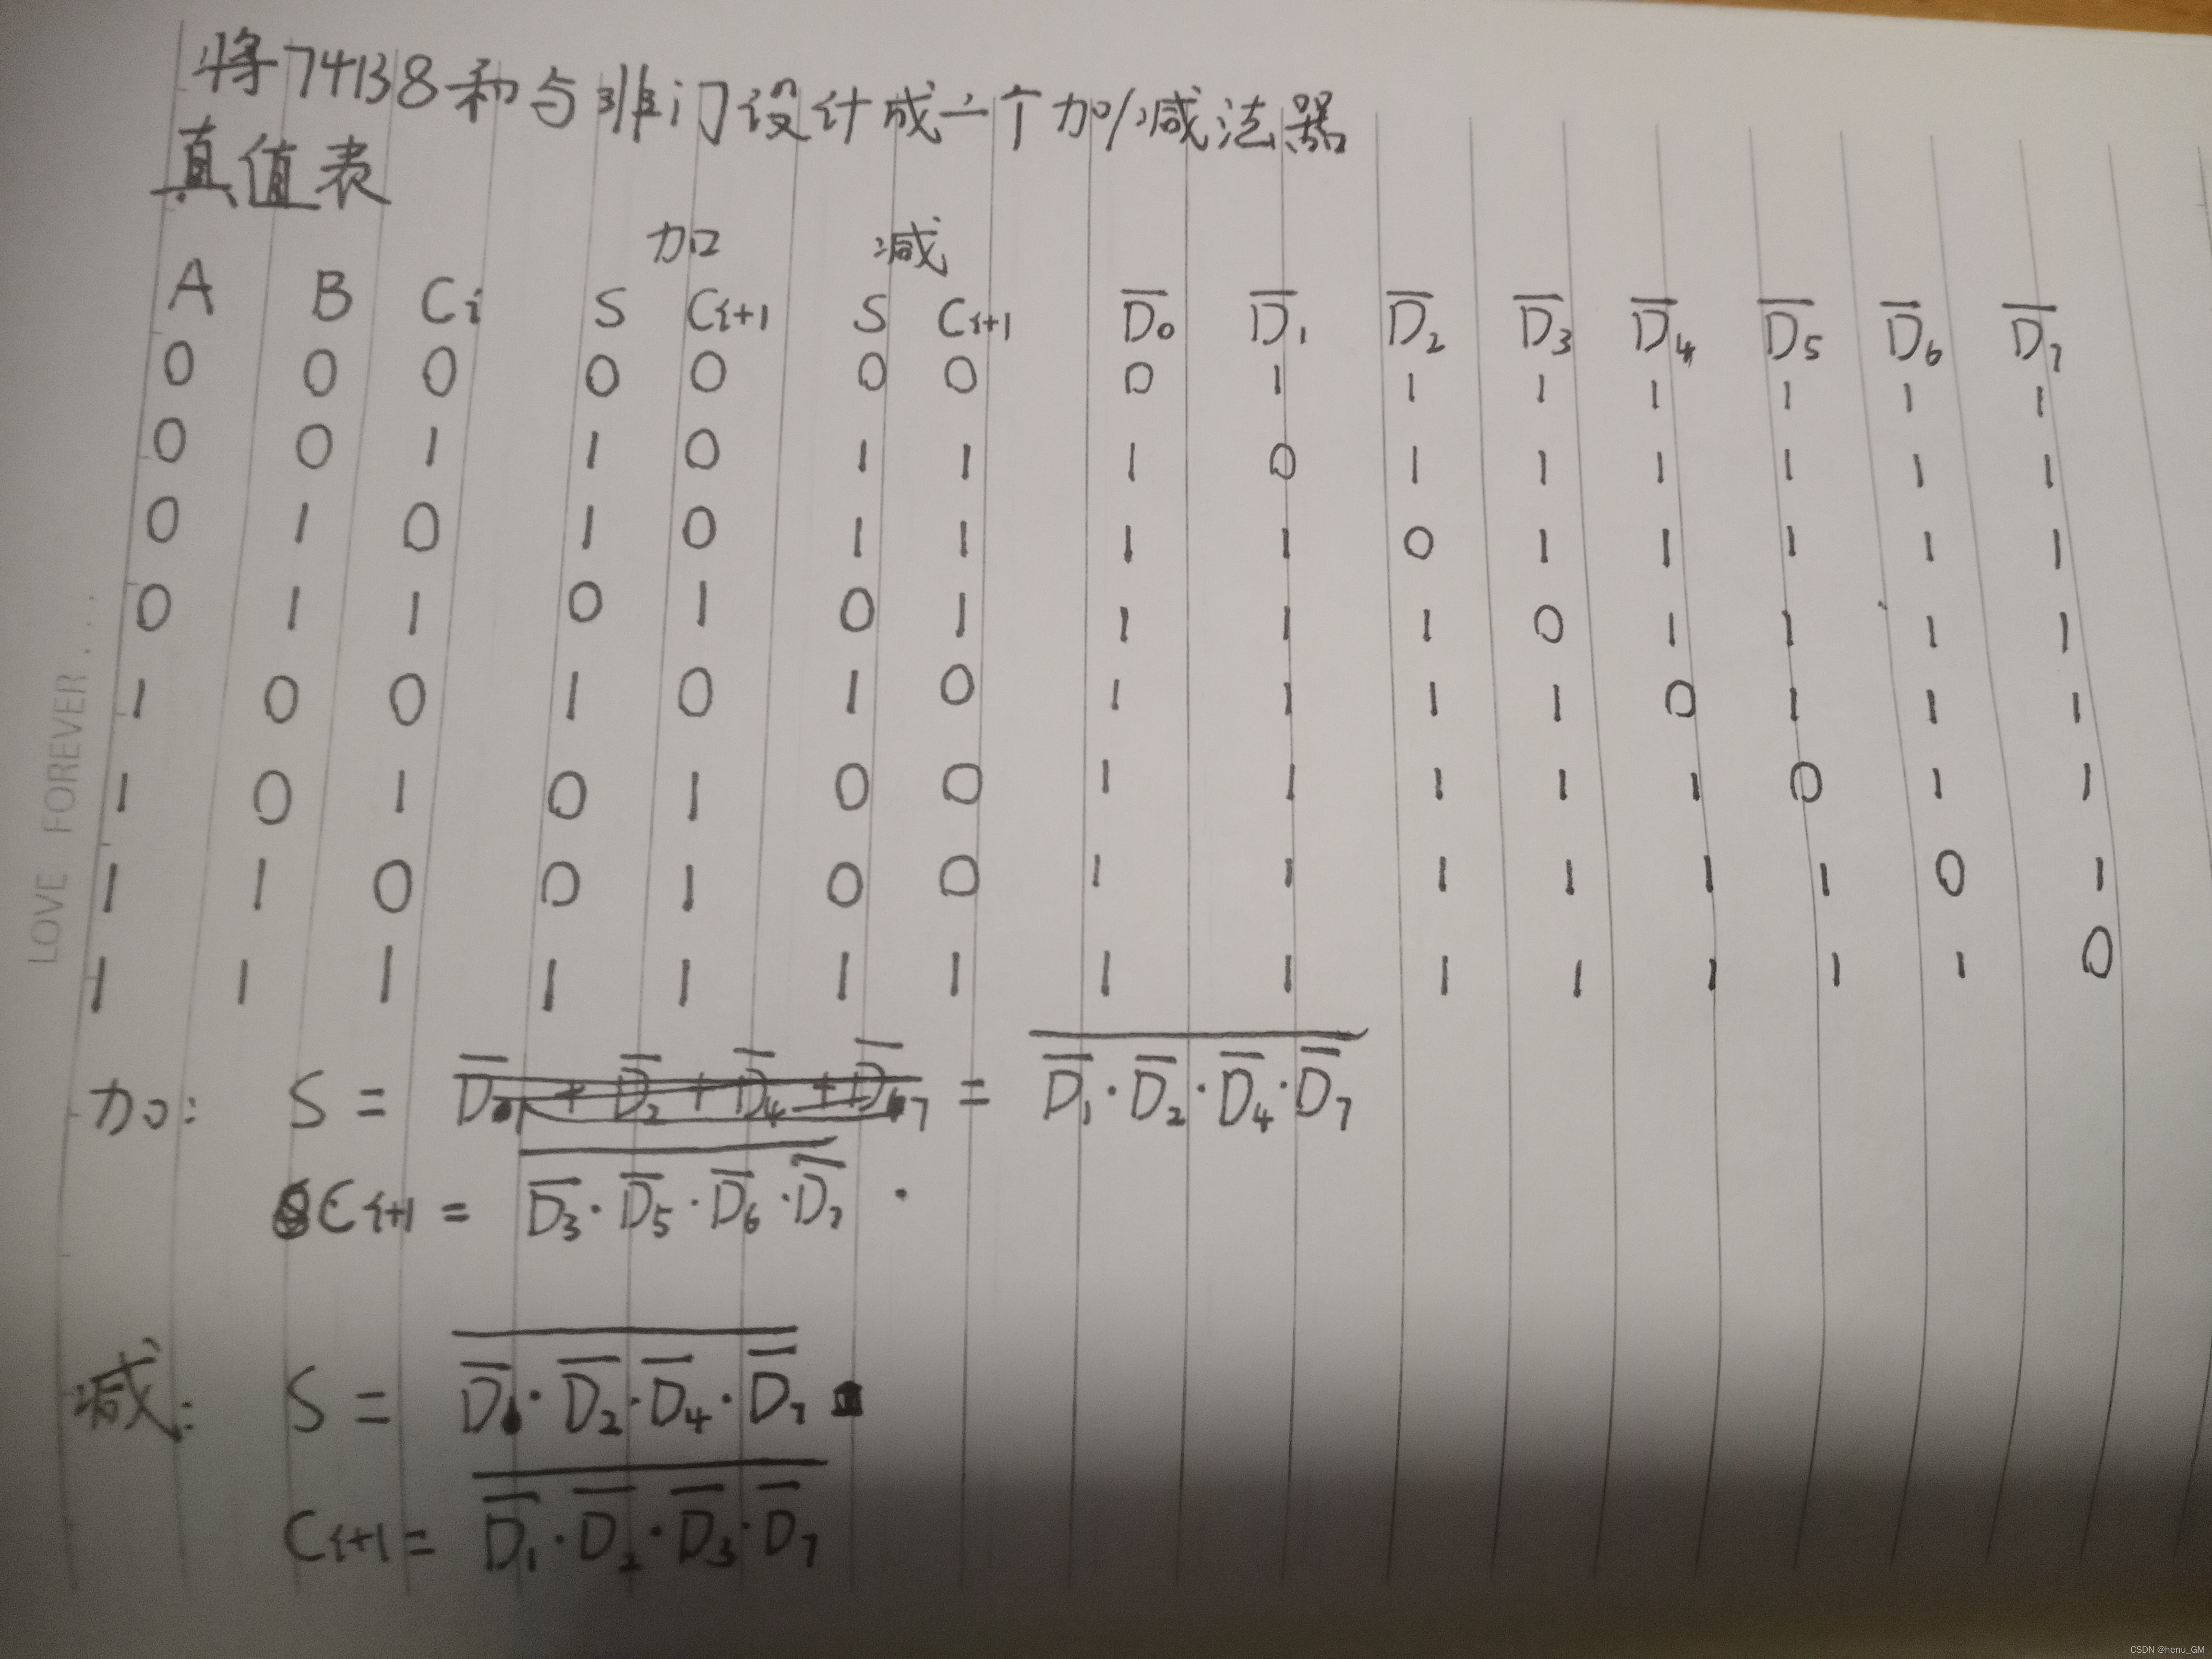 将74138和与非门设计成一个加/减法器
真值表
加 减
A B Ci S Ci+1 S Ci+1 D̅0 D̅1 D̅2 D̅3 D̅4 D̅5 D̅6 D̅7
0 0 0 0 0 0 0 0 1 1 1 1 1 1 1
0 0 1 1 0 1 1 1 0 1 1 1 1 1 1
0 1 0 1 0 1 1 1 1 0 1 1 1 1 1
0 1 1 0 1 0 1 1 1 1 0 1 1 1 1
1 0 0 1 0 1 0 1 1 1 1 0 1 1 1
1 0 1 0 1 0 0 1 1 1 1 1 0 1 1
1 1 0 0 1 0 0 1 1 1 1 1 1 0 1
1 1 1 1 1 1 1 1 1 1 1 1 1 1 0
加: S = = \overline{D̅1·D̅2·D̅4·D̅7}
Ci+1 = \overline{D̅3·D̅5·D̅6·D̅7}
减: S = \overline{D̅1·D̅2·D̅4·D̅7}
Ci+1 = \overline{D̅1·D̅2·D̅3·D̅7}
LOVE FOREVER...
CSDN @henu_GM